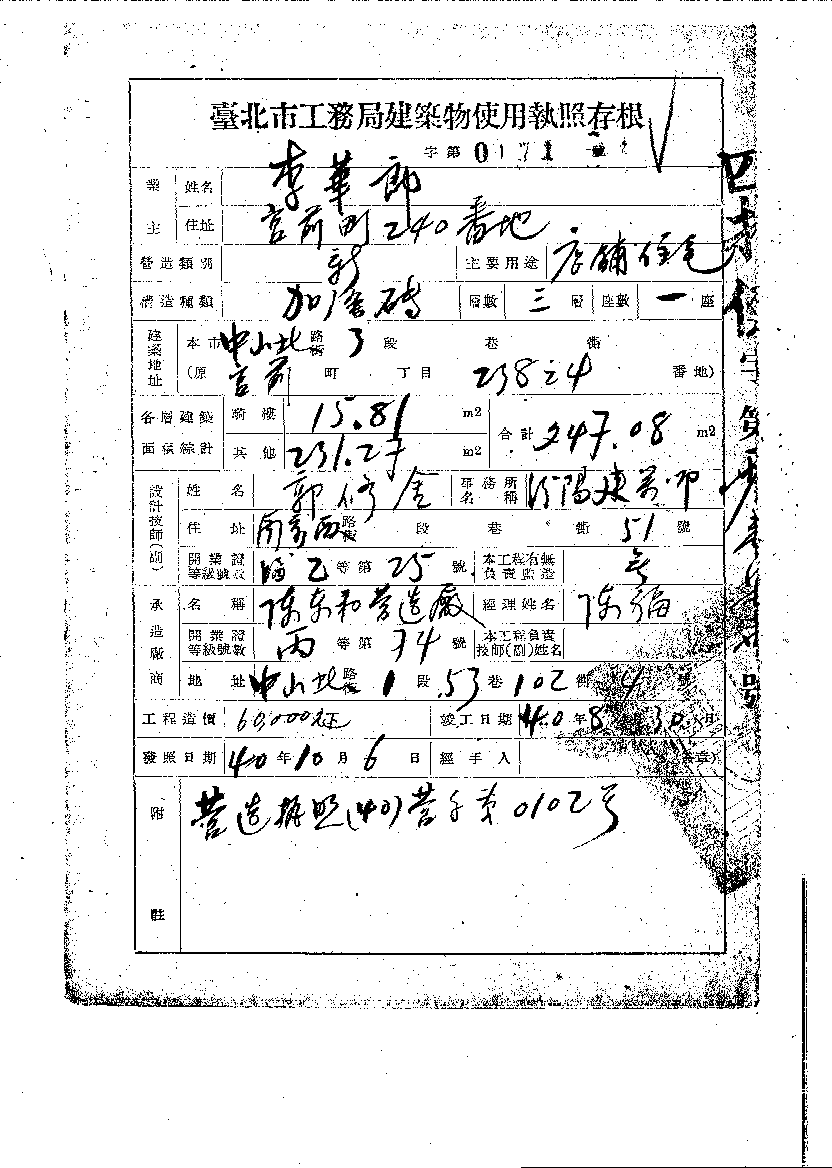 臺北市工務局建築物使用執照存根
字第 0171 號
業主 姓名 李華郎
住址 宮前町240番地
營造類別 新 主要用途 店鋪住宅
構造種類 加強磚 層數 三層 座數 一座
建築地址 本市 中山北 路街 3 段 巷 衖
(原 宮前 町 丁目 238之4 番地)
各層建築面積綜計 騎樓 15.81 m2 合計 247.08 m2
其他 231.27 m2
設計技師(副) 姓名 郭修金 事務所名稱 汾陽建築師
住址 西路街 段 巷 衖 51 號
開業證等級號數 乙等第 25 號 本工程有無負責監造 無
承造廠商 名稱 陳東和營造廠 經理姓名 陳福
開業證等級號數 丙等第 74 號 本工程負責技師(副)姓名
地址 中山北 路街 1 段 53 巷 102 衖 4 號
工程造價 60,000元 竣工日期 40年8月30日
發照日期 40年10月6日 經手人 (蓋章)
附註 營造執照(40)营字第0102号